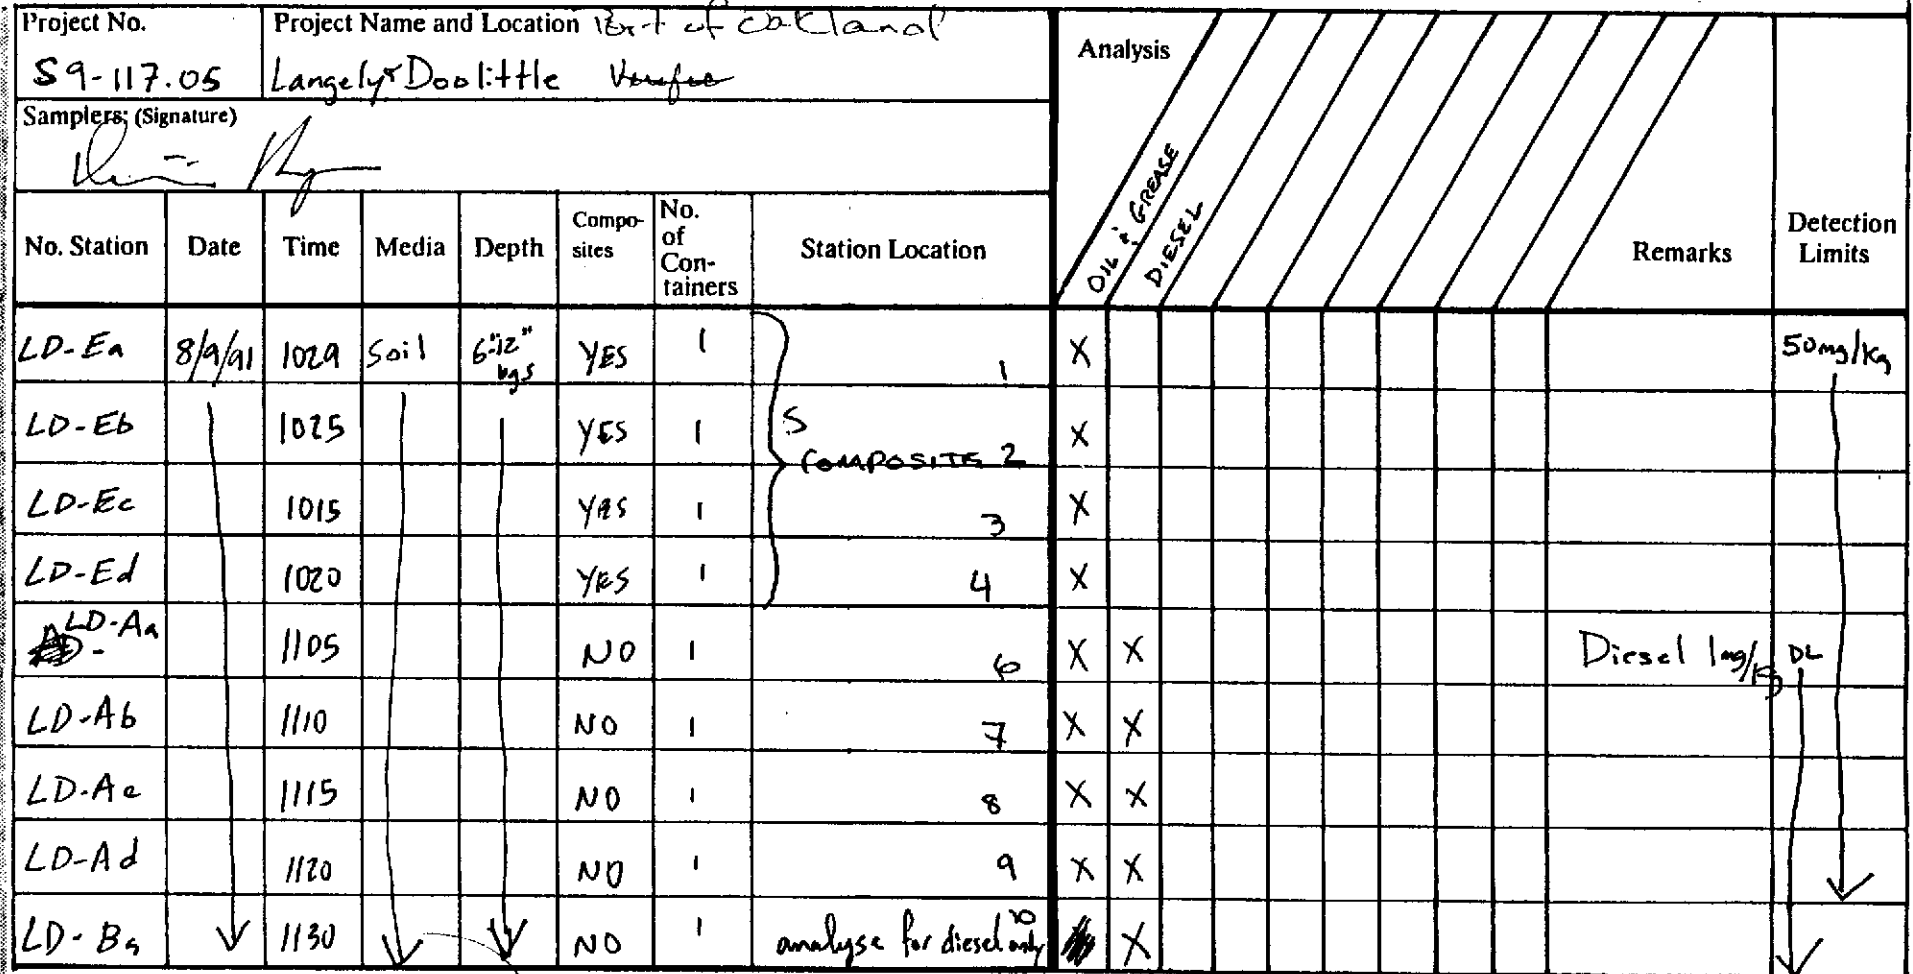 Project No. Project Name and Location Port of Oakland
S9-117.05 Langely & Doolittle
Samplers: (Signature)
Analysis
OIL & GREASE
DIESEL
No. Station Date Time Media Depth Compo-sites No. of Con-tainers Station Location Remarks Detection Limits
LD-Ea 8/9/91 1029 Soil 6"-12" bgs YES 1 1 X 50mg/Kg
LD-Eb 1025 YES 1 5 COMPOSITE 2 X
LD-Ec 1015 YES 1 3 X
LD-Ed 1020 YES 1 4 X
LD-Aa 1105 NO 1 6 X X Diesel 1mg/Kg DL
LD-Ab 1110 NO 1 7 X X
LD-Ac 1115 NO 1 8 X X
LD-Ad 1120 NO 1 9 X X
LD-Ba 1130 NO 1 analyse for diesel only 10 X